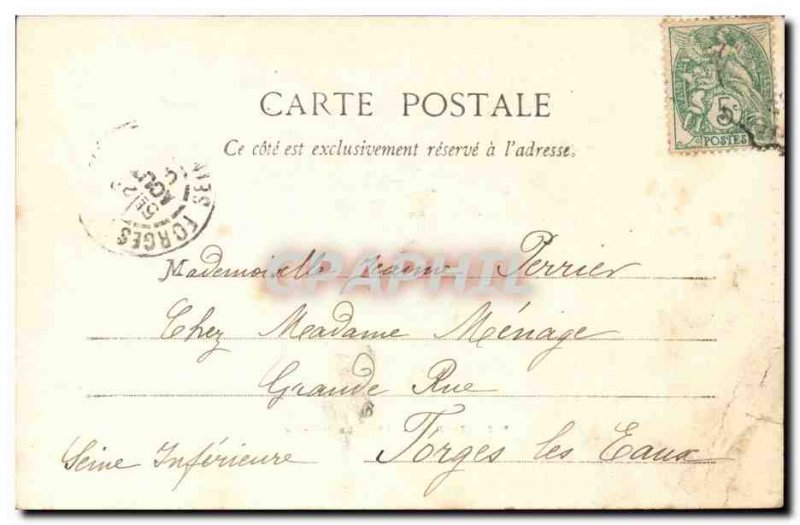 CARTE POSTALE
Ce côté est exclusivement réservé à l'adresse.
5c
POSTES
FORGES
AOUT
CPAPHIL
Mademoiselle Jeanne Perrier
Chez Madame Ménage
Grande Rue
Forges les Eaux
Seine Inférieure